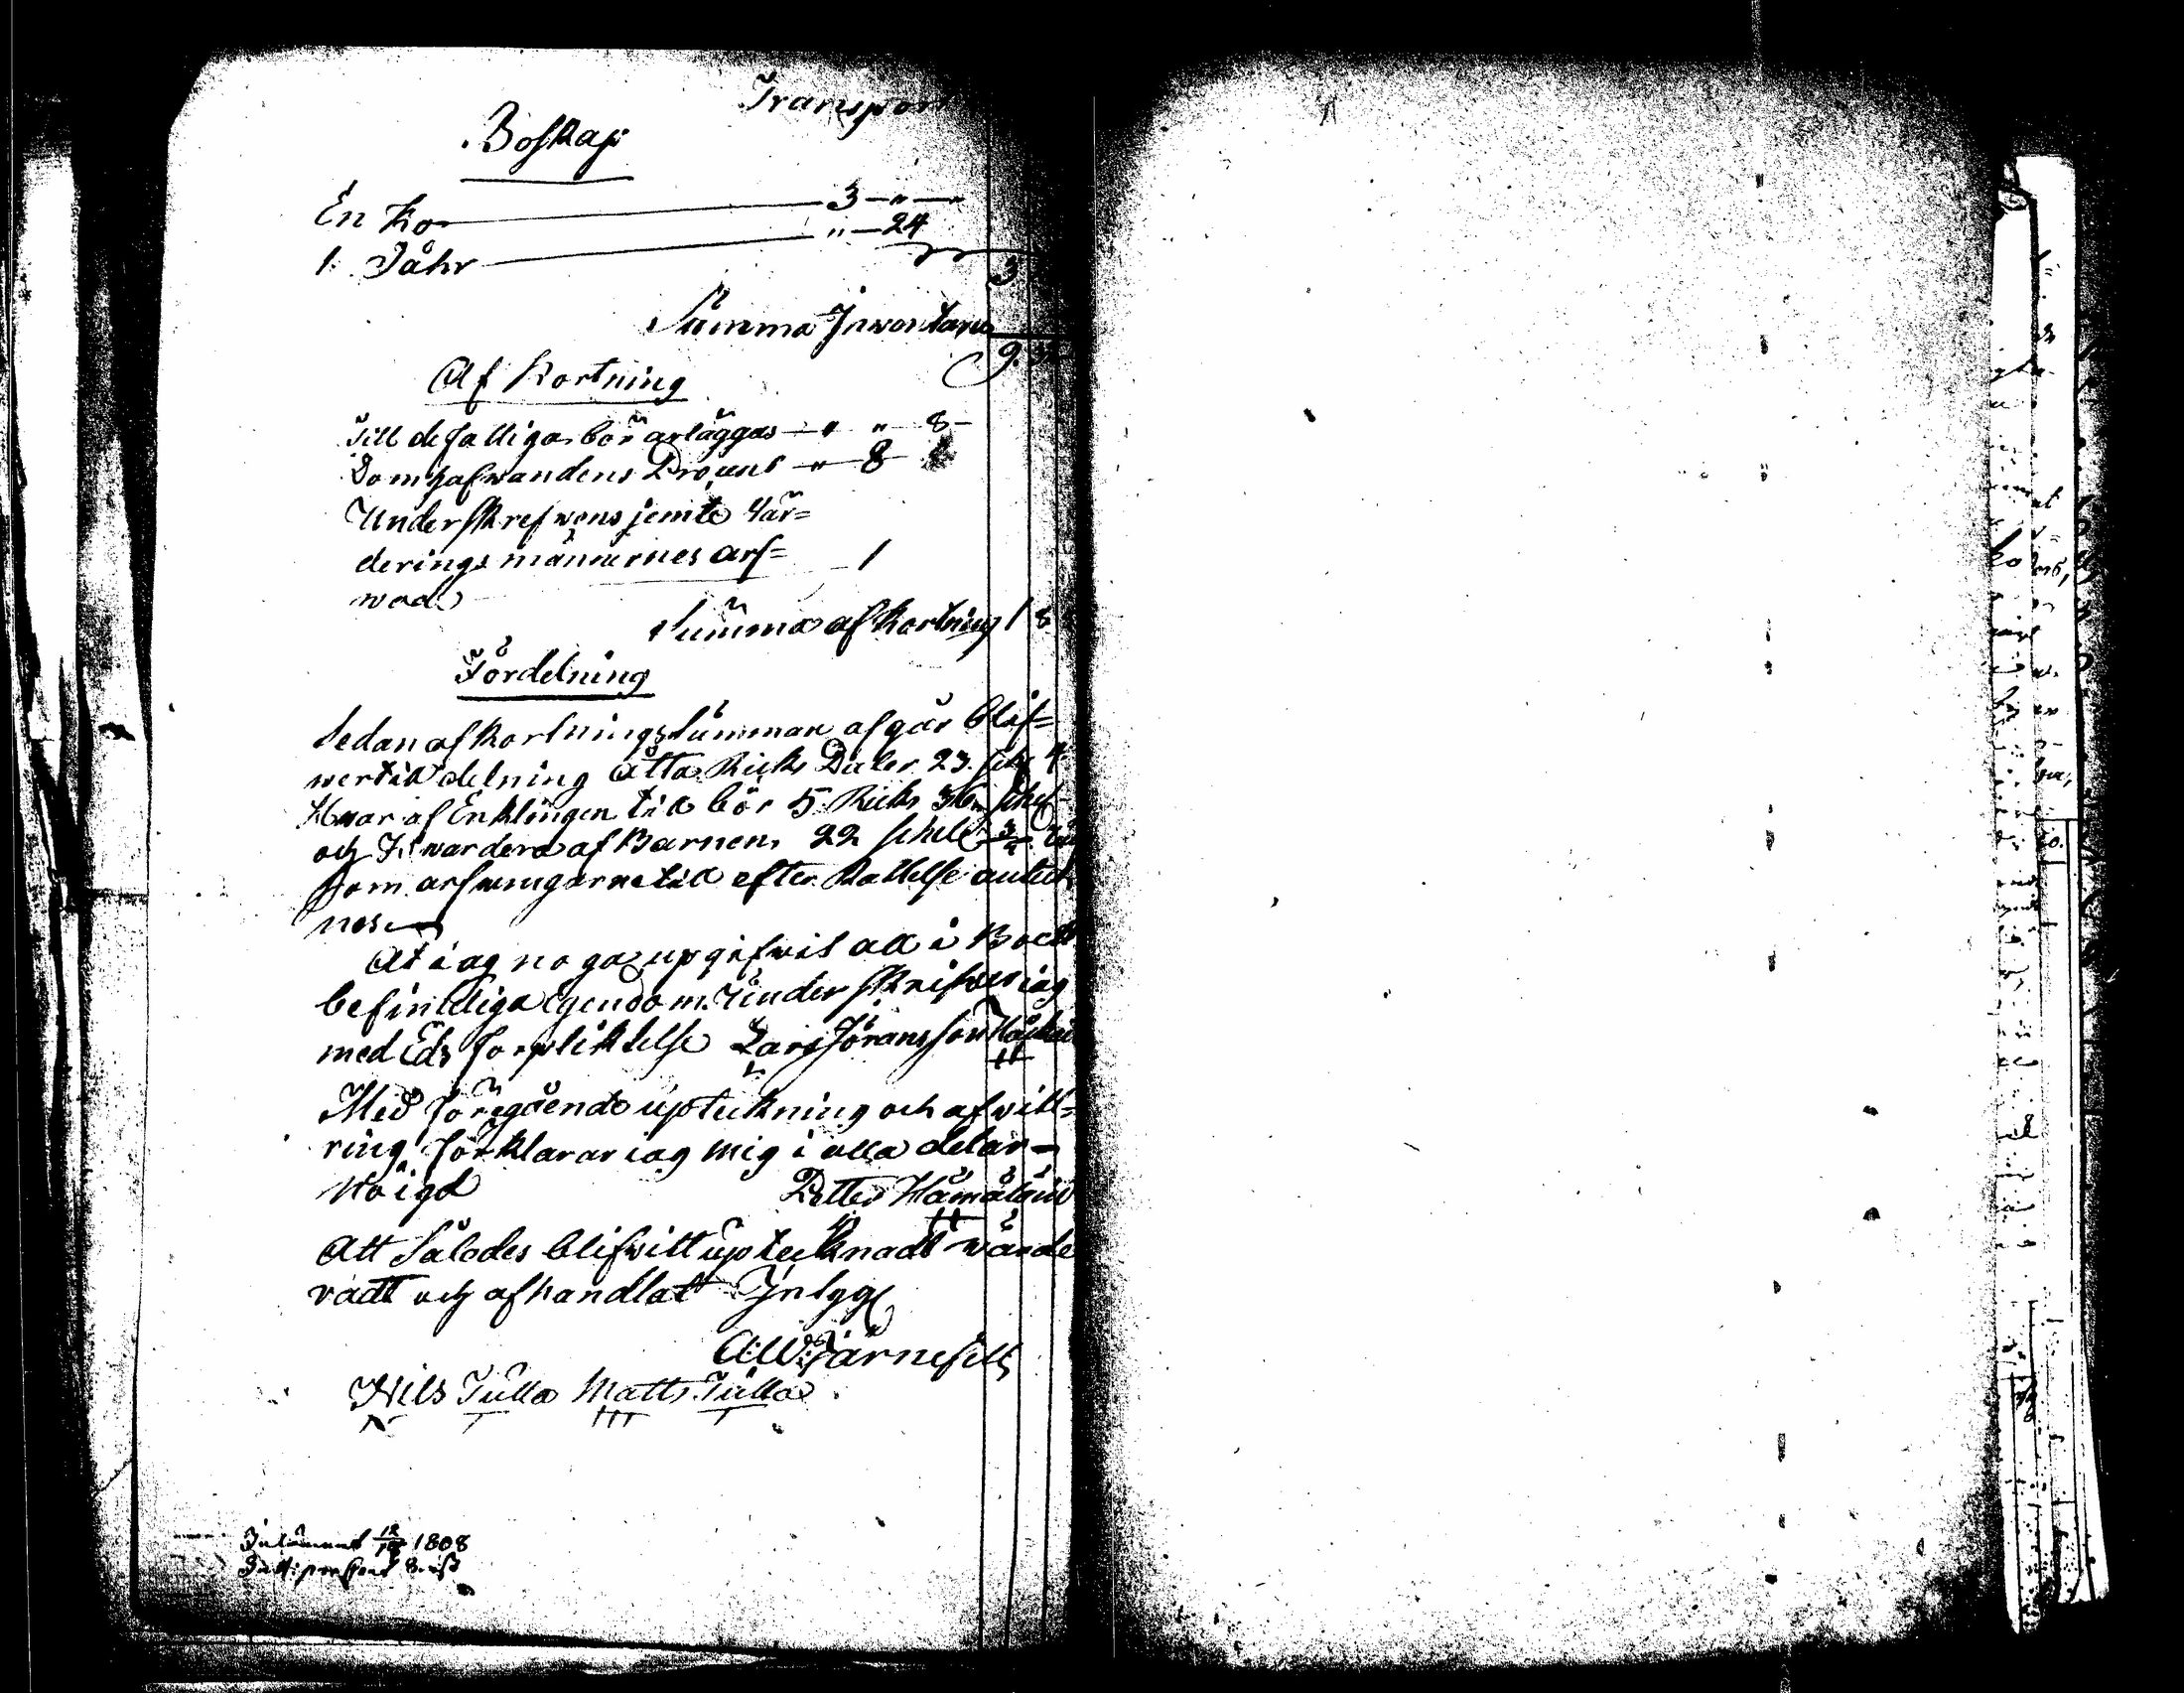 Transport
Boskap
En Ko 3 - " -
1. Fåhr " - 24
3
Summa Inventarium
9. 3
Af Kortning
Till de fattiga bör ärläggas - " " 8 -
Domhafwandens Prosent " 8
Underskrefwens jemte Vär=
derings männernes arf= 1
wode
Summa af Kortning 1 8
Fördelning
Sedan afkortnings Summan afgår blif=
wer till delning Åtta Ricks Daler 23. sch 4
Hwar af Enklingen till bör 5 Ricks 36 schel
och Hwardera af Barnen 22 schell
som arfwingarne till efter Rättelse anteck
nes
At iag noga upgifwit all i Boett
befinteliga egendom. Underskrifwer iag
med Eds förpliktelse Lars Jöransson
Med föregående upteckning och afwitt=
ring förklarar iag mig i alla delar
Nöigd Petter Hämäläin
Att Således blifwitt upteknadt wärde
radt och afhandlat Intyg
A W Järnefelt
Nils Tulla Matts Tulla
Inlämnat 12/10 1808